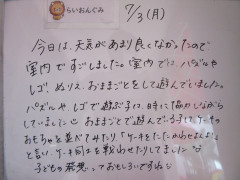 らいおんぐみ
7/3(月)
今日は、天気があまり良くなかったので
室内ですごしました。室内では、パズルや
レゴ、ぬりえ、おままごとをして遊んでいました。
パズルや レゴで遊ぶ子は、時に協力しながら
していました おままごとで遊んでいる子は、ケーキの
おもちゃを並べてみたり「ケーキをたたかわせましょ」
と言い ケーキ同士を戦わせたりしてました
子どもの発想っておもしろいですね